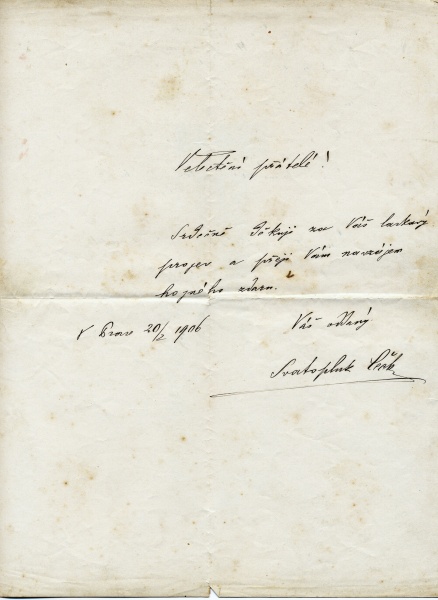 Velectění přátelé!
Srdečně děkuji za Váš laskavý
projev a přeji Vám navzájem
hojného zdaru.
V Praze 20/2 1906
Váš oddaný
Svatopluk Čech